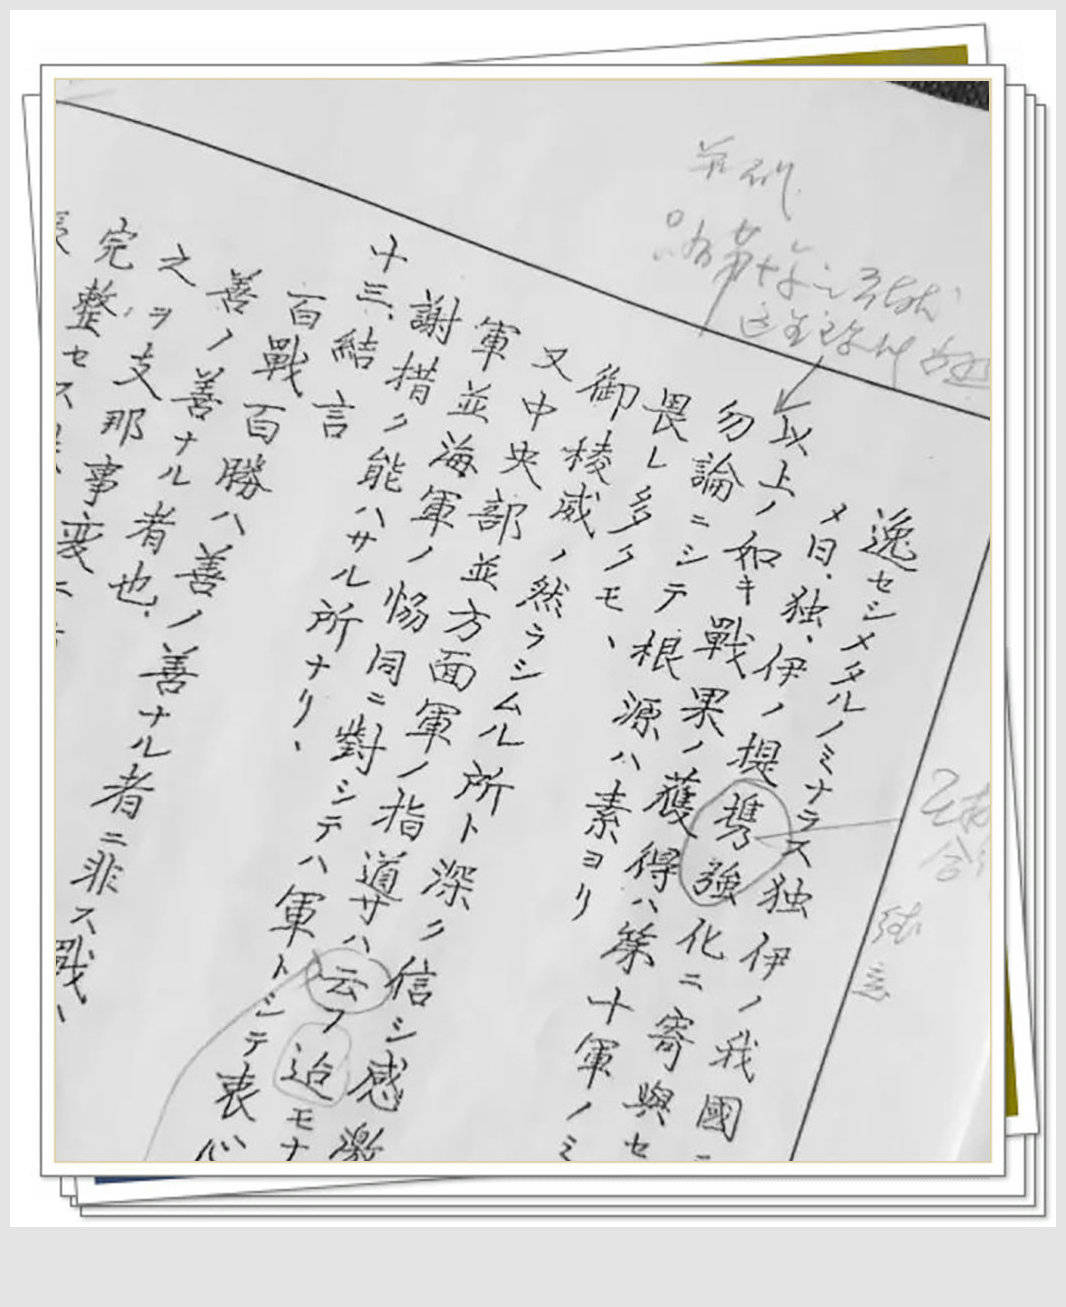 逸セシメタルノミナラス独伊ノ我國ニ
メ日、独、伊ノ提携強化ニ寄與セ
以上ノ如キ戰果ノ獲得ハ第十軍ノミ
勿論ニシテ根源ハ素ヨリ
畏レ多クモ、
御稜威ノ然ラシムル所ト深ク信シ感激
又中央部並方面軍ノ指道サハ云フ迨モナ
軍並海軍ノ恊同ニ對シテハ軍トシテ衷心
謝措ク能ハサル所ナリ、
十三、結言
百戰百勝ハ善ノ善ナル者ニ非ス戰ハ
善ノ善ナル者也、
之ヲ支那事変ニ
完整セス